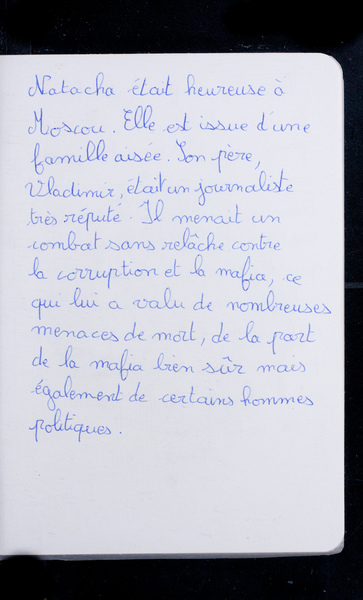 Natacha était heureuse à
Moscou. Elle est issue d'une
famille aisée. Son père,
Vladimir, était un journaliste
très réputé. Il menait un
combat sans relâche contre
la corruption et la mafia, ce
qui lui a valu de nombreuses
menaces de mort, de la part
de la mafia bien sûr mais
également de certains hommes
politiques.